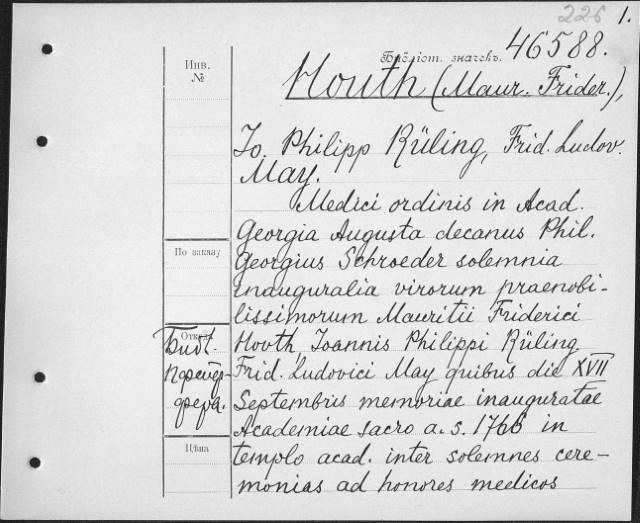 226 1.
Библіот. значекъ. 46588.
Инв.
№
Houth (Maur. Frider.),
Jo. Philipp Rüling, Frid. Ludov.
May.
Medici ordinis in Acad.
Georgia Augusta decanus Phil.
По заказу
Georgius Schroeder solemnia
inauguralia virorum praenobi-
lissimorum Mauritii Friderici
Откуда
Библ.
Houth Joannis Philippi Rüling
Frid. Ludovici May quibus die XVII
Septembris memoriae inauguratae
Academiae sacro a. s. 1766 in
Цѣна
templo acad. inter solemnes cere-
monias ad honores medicos